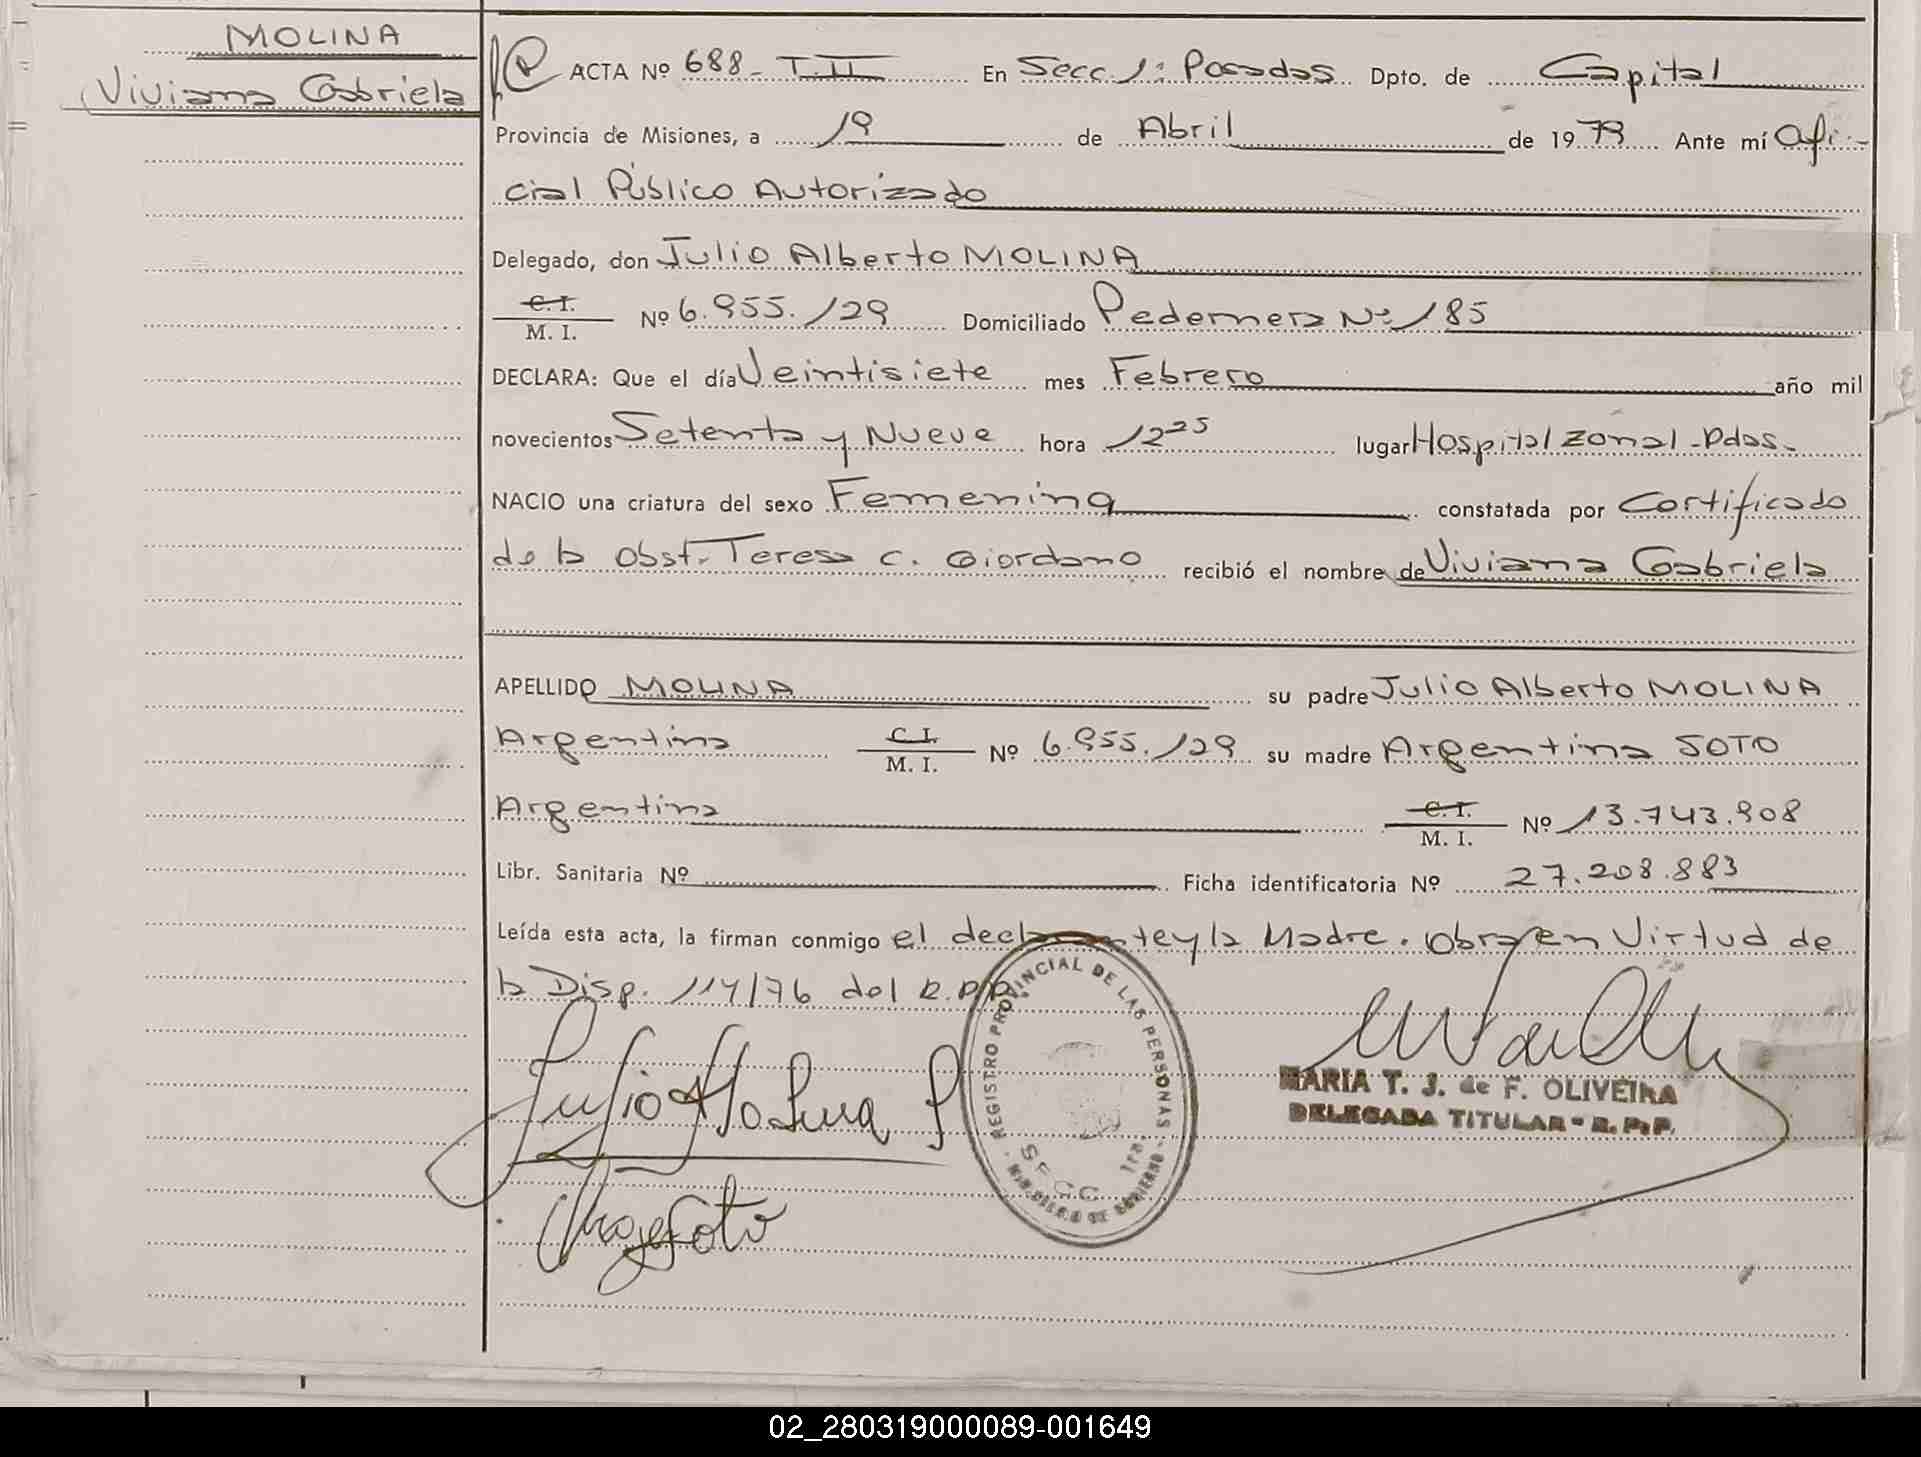 MOLINA
Viviana Gabriela
ACTA Nº 688 - T. II En Secc. 1ª Posadas Dpto. de Capital
Provincia de Misiones, a 19 de Abril de 1979 Ante mí Ofi-
cial Público Autorizado
Delegado, don Julio Alberto MOLINA
C. I.
M. I. Nº 6.955.129 Domiciliado Pedernera Nº 185
DECLARA: Que el día Veintisiete mes Febrero año mil
novecientos Setenta y Nueve hora 12 25 lugar Hospital Zonal - Pdas -
NACIO una criatura del sexo Femenina constatada por Certificado
de la Obst. Teresa C. Giordano recibió el nombre de Viviana Gabriela
APELLIDO MOLINA su padre Julio Alberto MOLINA
Argentina C. I. M. I. Nº 6.955.129 su madre Argentina SOTO
Argentina C. I. M. I. Nº 13.743.908
Libr. Sanitaria Nº Ficha identificatoria Nº 27.208.883
Leída esta acta, la firman conmigo el declarante y la Madre. Obra en Virtud de
la Disp. 114/76 del R.P.P.
REGISTRO PROVINCIAL DE LAS PERSONAS
SECC 1ra
MINISTERIO DE GOBIERNO
MARIA T. J. de F. OLIVEIRA
DELEGADA TITULAR - R. P. P.
02_280319000089-001649